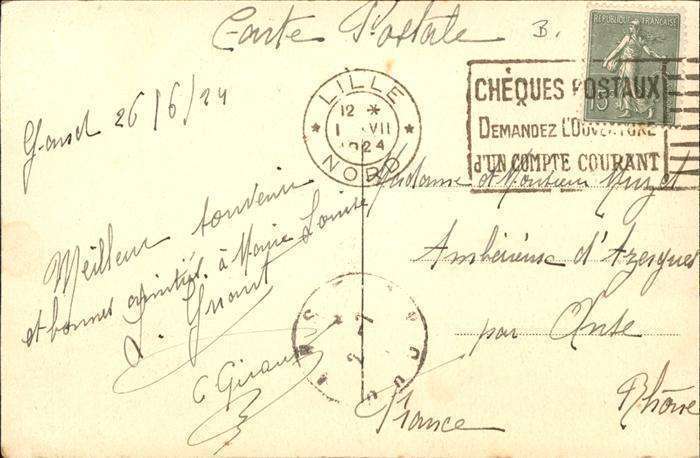 Carte Postale
B.
RÉPUBLIQUE FRANÇAISE
15
CHÈQUES POSTAUX
DEMANDEZ L'OUVERTURE
d'UN COMPTE COURANT
LILLE
12 *
1 VII
1924
NORD
26/6/24
Meilleur souvenir
et bonnes amitiés à Marie Louise
Madame et Monsieur
Ambérieux d'Azergues
par Anse
Rhône
France
2-7